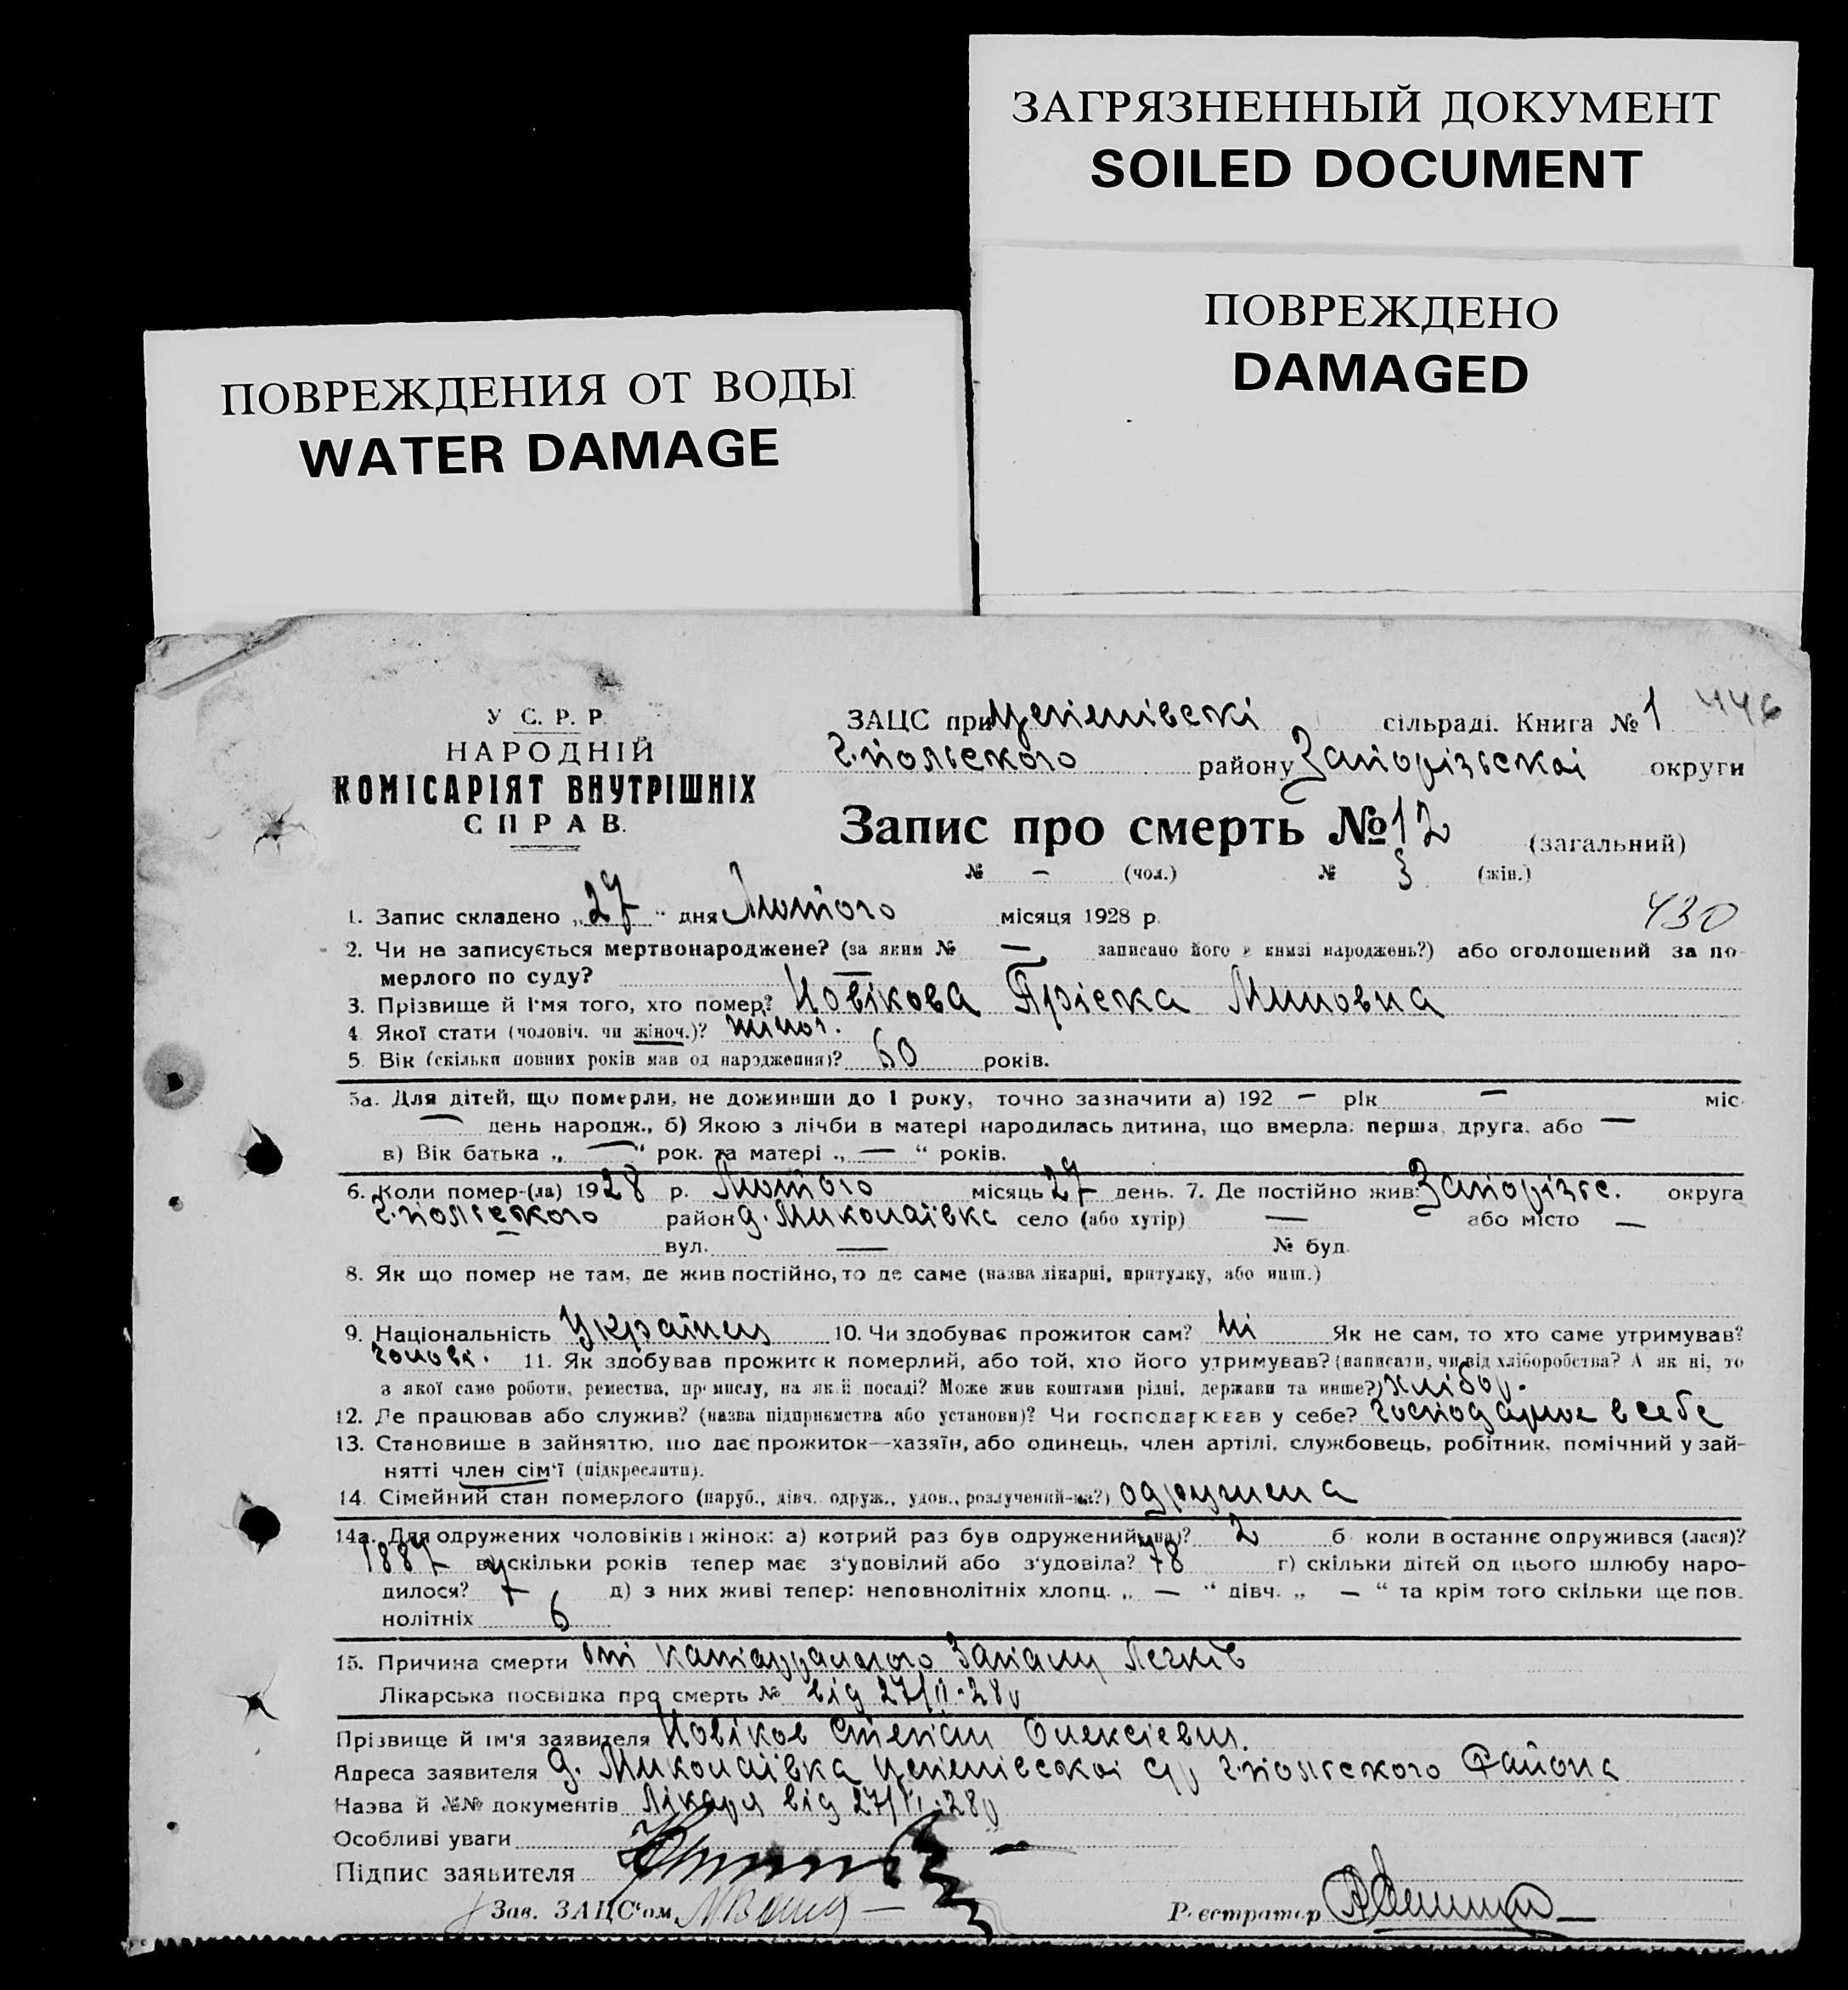 ЗАГРЯЗНЕННЫЙ ДОКУМЕНТ
SOILED DOCUMENT
ПОВРЕЖДЕНО
DAMAGED
ПОВРЕЖДЕНИЯ ОТ ВОДЫ
WATER DAMAGE
У С. Р. Р.
НАРОДНІЙ
КОМІСАРІЯТ ВНУТРІШНІХ
СПРАВ.
ЗАЦС при сільраді. Книга № 1 446
Г.польского району Запорізьскоі округи
Запис про смерть № 12 (загальний)
№ — (чол.) № 3 (жін.)
430
1. Запис складено „27“ дня Лютого місяця 1928 р.
2. Чи не записується мертвонароджене? (за яким № — записано його в книзі народжень?) або оголошений за по-
мерлого по суду? —
3. Прізвище й ім'я того, хто помер? Новікова Пріська Миновна
4 Якої стати (чоловіч. чи жіноч.)? жіноч.
5. Вік (скільки повних років мав од народження)? 60 років.
5а. Для дітей, що померли, не доживши до 1 року, точно зазначити а) 192 — рік — міс.
— день народж., б) Якою з лічби в матері народилась дитина, що вмерла: перша, друга, або —
в) Вік батька „ — “ рок. та матері „ — “ років.
6. Коли помер-(ла) 1928 р. Лютого місяць 27 день. 7. Де постійно жив: Запорізьс. округа
Г.польского район д. Миколаівка село (або хутір) — або місто —
вул. — № буд.
8. Як що помер не там, де жив постійно, то де саме (назва лікарні, притулку, або инш.)
9. Національність Українец 10. Чи здобував прожиток сам? ні Як не сам, то хто саме утримував?
чолові. 11. Як здобував прожиток померлий, або той, хто його утримував? (написати, чи від хліборобства? А як ні, то
з якої саме роботи, ремества, промислу, на якій посаді? Може жив коштами рідні, держави та инше?) хлібор.
12. Де працював або служив? (назва підприємства або установи)? Чи господарював у себе? господарюе в себе
13. Становище в зайняттю, що дає прожиток—хазяїн, або одинець, член артілі, службовець, робітник, помічний у зай-
нятті член сім'ї (підкреслити).
14. Сімейний стан померлого (паруб., дівч. одруж., удов., розлучений-на?) одружена
14а. Для одружених чоловіків і жінок: а) котрий раз був одружений (на)? 2 б коли в останнє одружився (лася)?
1887 в) скільки років тепер має з'удовілий або з'удовіла? 78 г) скільки дітей од цього шлюбу наро-
дилося? 7 д) з них живі тепер: неповнолітніх хлопц. „ — “ дівч. „ — “ та крім того скільки ще пов.
нолітніх 6
15. Причина смерти от катаррального Запалу Легків
Лікарська посвідка про смерть № від 27/II-28р
Прізвище й ім'я заявителя Новіков Степан Олексіевич.
Адреса заявителя д. Миколаівка с/р Г.польского Району
Назва й №№ документів Лікаря від 27/II-28р
Особливі уваги —
Підпис заявителя
Зав. ЗАЦС'ом
Реєстратор